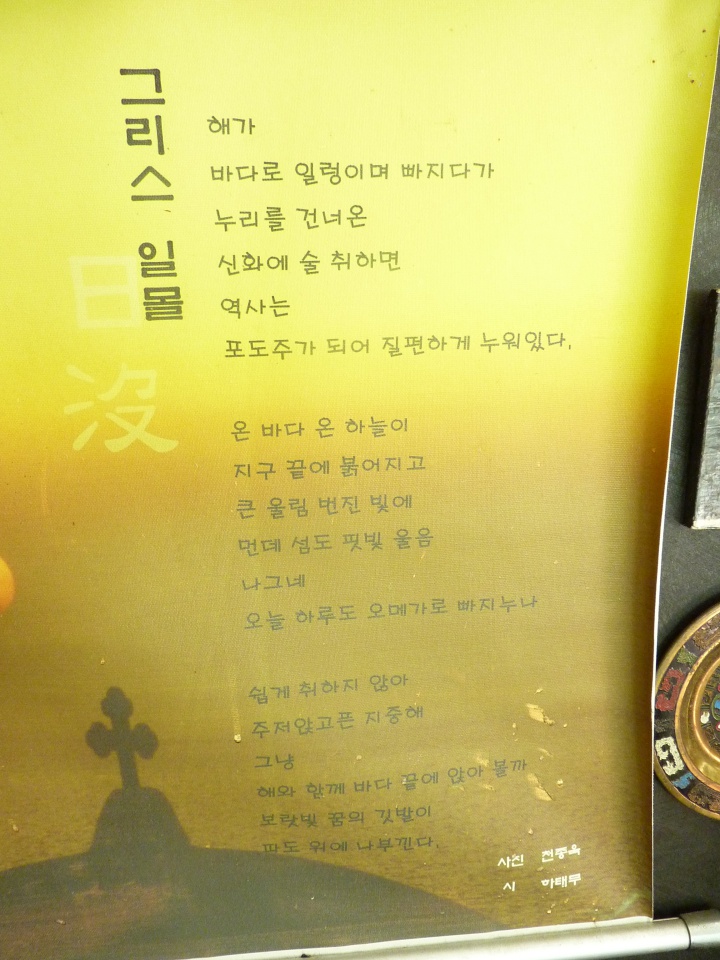 그리스 일몰
日没
해가
바다로 일렁이며 빠지다가
누리를 건너온
신화에 술 취하면
역사는
포도주가 되어 질펀하게 누워있다.
온 바다 온 하늘이
지구 끝에 붉어지고
큰 울림 번진 빛에
먼데 섬도 핏빛 울음
나그네
오늘 하루도 오메가로 빠지누나
쉽게 취하지 않아
주저앉고픈 지중해
그냥
해와 함께 바다 끝에 앉아 볼까
보랏빛 꿈의 깃발이
파도 위에 나부낀다.
사진 천중욱
시 하태무